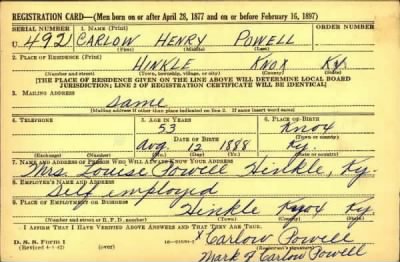 REGISTRATION CARD—(Men born on or after April 28, 1877 and on or before February 16, 1897)
SERIAL NUMBER 1. NAME (Print) ORDER NUMBER
U 4921 CARLOW HENRY POWELL
(First) (Middle) (Last)
2. PLACE OF RESIDENCE (Print)
HINKLE KNOX Ky.
(Number and street) (Town, township, village, or city) (County) (State)
[THE PLACE OF RESIDENCE GIVEN ON THE LINE ABOVE WILL DETERMINE LOCAL BOARD
JURISDICTION; LINE 2 OF REGISTRATION CERTIFICATE WILL BE IDENTICAL]
3. MAILING ADDRESS
Same
[Mailing address if other than place indicated on line 2. If same insert word same]
4. TELEPHONE 5. AGE IN YEARS 6. PLACE OF BIRTH
53 Knox
DATE OF BIRTH (Town or county)
Aug. 12 1888 Ky.
(Exchange) (Number) (Mo.) (Day) (Yr.) (State or country)
7. NAME AND ADDRESS OF PERSON WHO WILL ALWAYS KNOW YOUR ADDRESS
Mrs. Louise Powell Hinkle, Ky.
8. EMPLOYER'S NAME AND ADDRESS
Self employed
9. PLACE OF EMPLOYMENT OR BUSINESS
Hinkle Knox Ky.
(Number and street or R. F. D. number) (Town) (County) (State)
I AFFIRM THAT I HAVE VERIFIED ABOVE ANSWERS AND THAT THEY ARE TRUE.
D. S. S. Form 1
(Revised 4-1-42) (over) X Carlow Powell
Mark of Carlow Powell